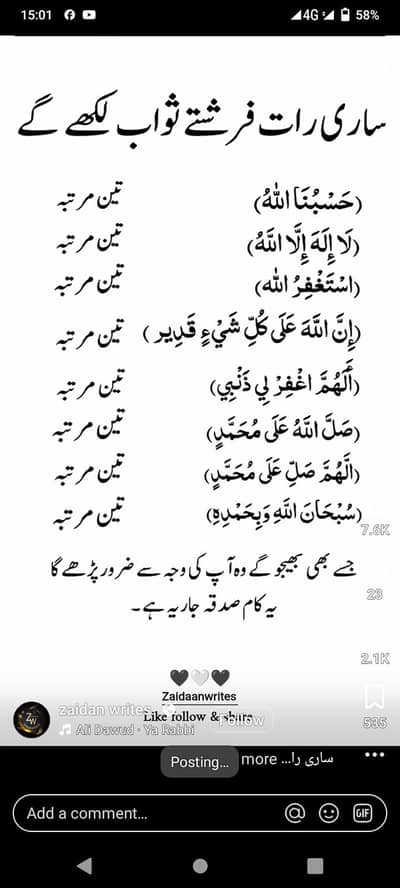 15:01 4G 58%
ساری رات فرشتے ثواب لکھے گے
(حَسْبُنَا اللهُ) تین مرتبہ
(لَا إِلَهَ إِلَّا اللَّهُ) تین مرتبہ
(اسْتَغْفِرُ الله) تین مرتبہ
(إِنَّ اللَّهَ عَلَى كُلِّ شَيْءٍ قَدِير) تین مرتبہ
(أَللَّهُمَّ اغْفِرْ لِي ذَنْبِي) تین مرتبہ
(صَلَّ اللَّهُ عَلَى مُحَمَّدٍ) تین مرتبہ
(الَّهُمَّ صَلِّ عَلَى مُحَمَّدٍ) تین مرتبہ
(سُبْحَانَ اللَّهِ وَبِحَمْدِهِ) تین مرتبہ
7.6K
جسے بھی بھیجو گے وہ آپ کی وجہ سے ضرور پڑھے گا
23
یہ کام صدقہ جاریہ ہے۔
2.1K
Zaidaanwrites
zaidan writes
Like follow & share
Follow
535
Ali Dawud · Ya Rabbi
Posting...
ساری را... more
Add a comment...
GIF